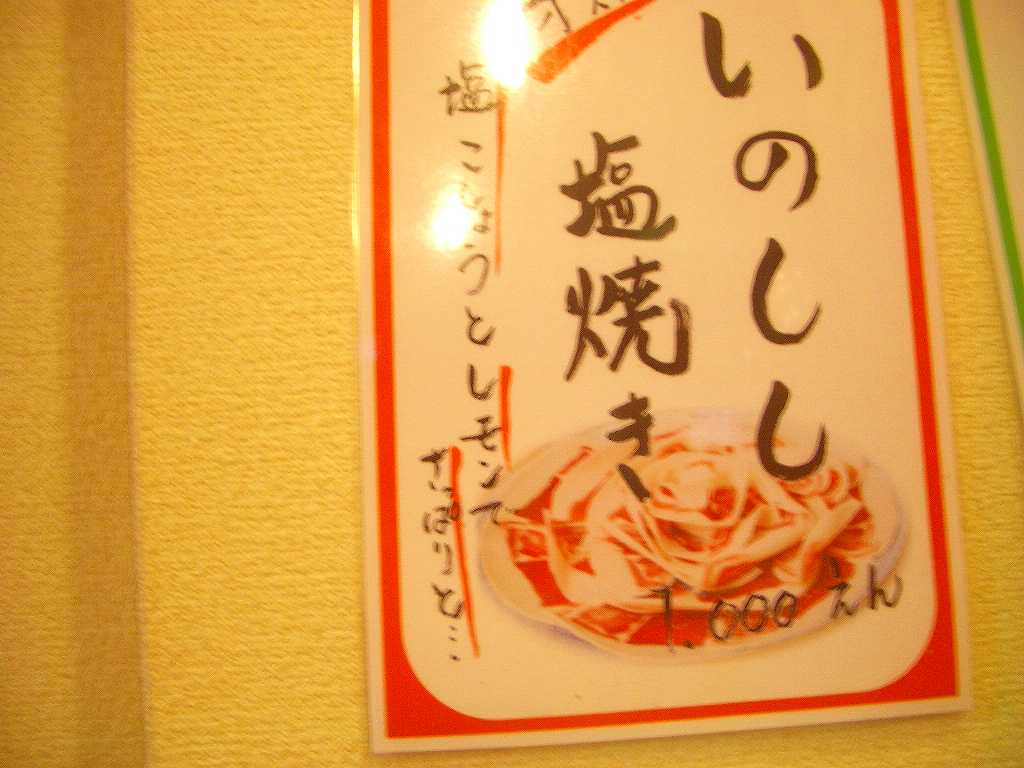 いのしし
塩焼き
塩こしょうとレモンで
さっぱりと…
1.000えん